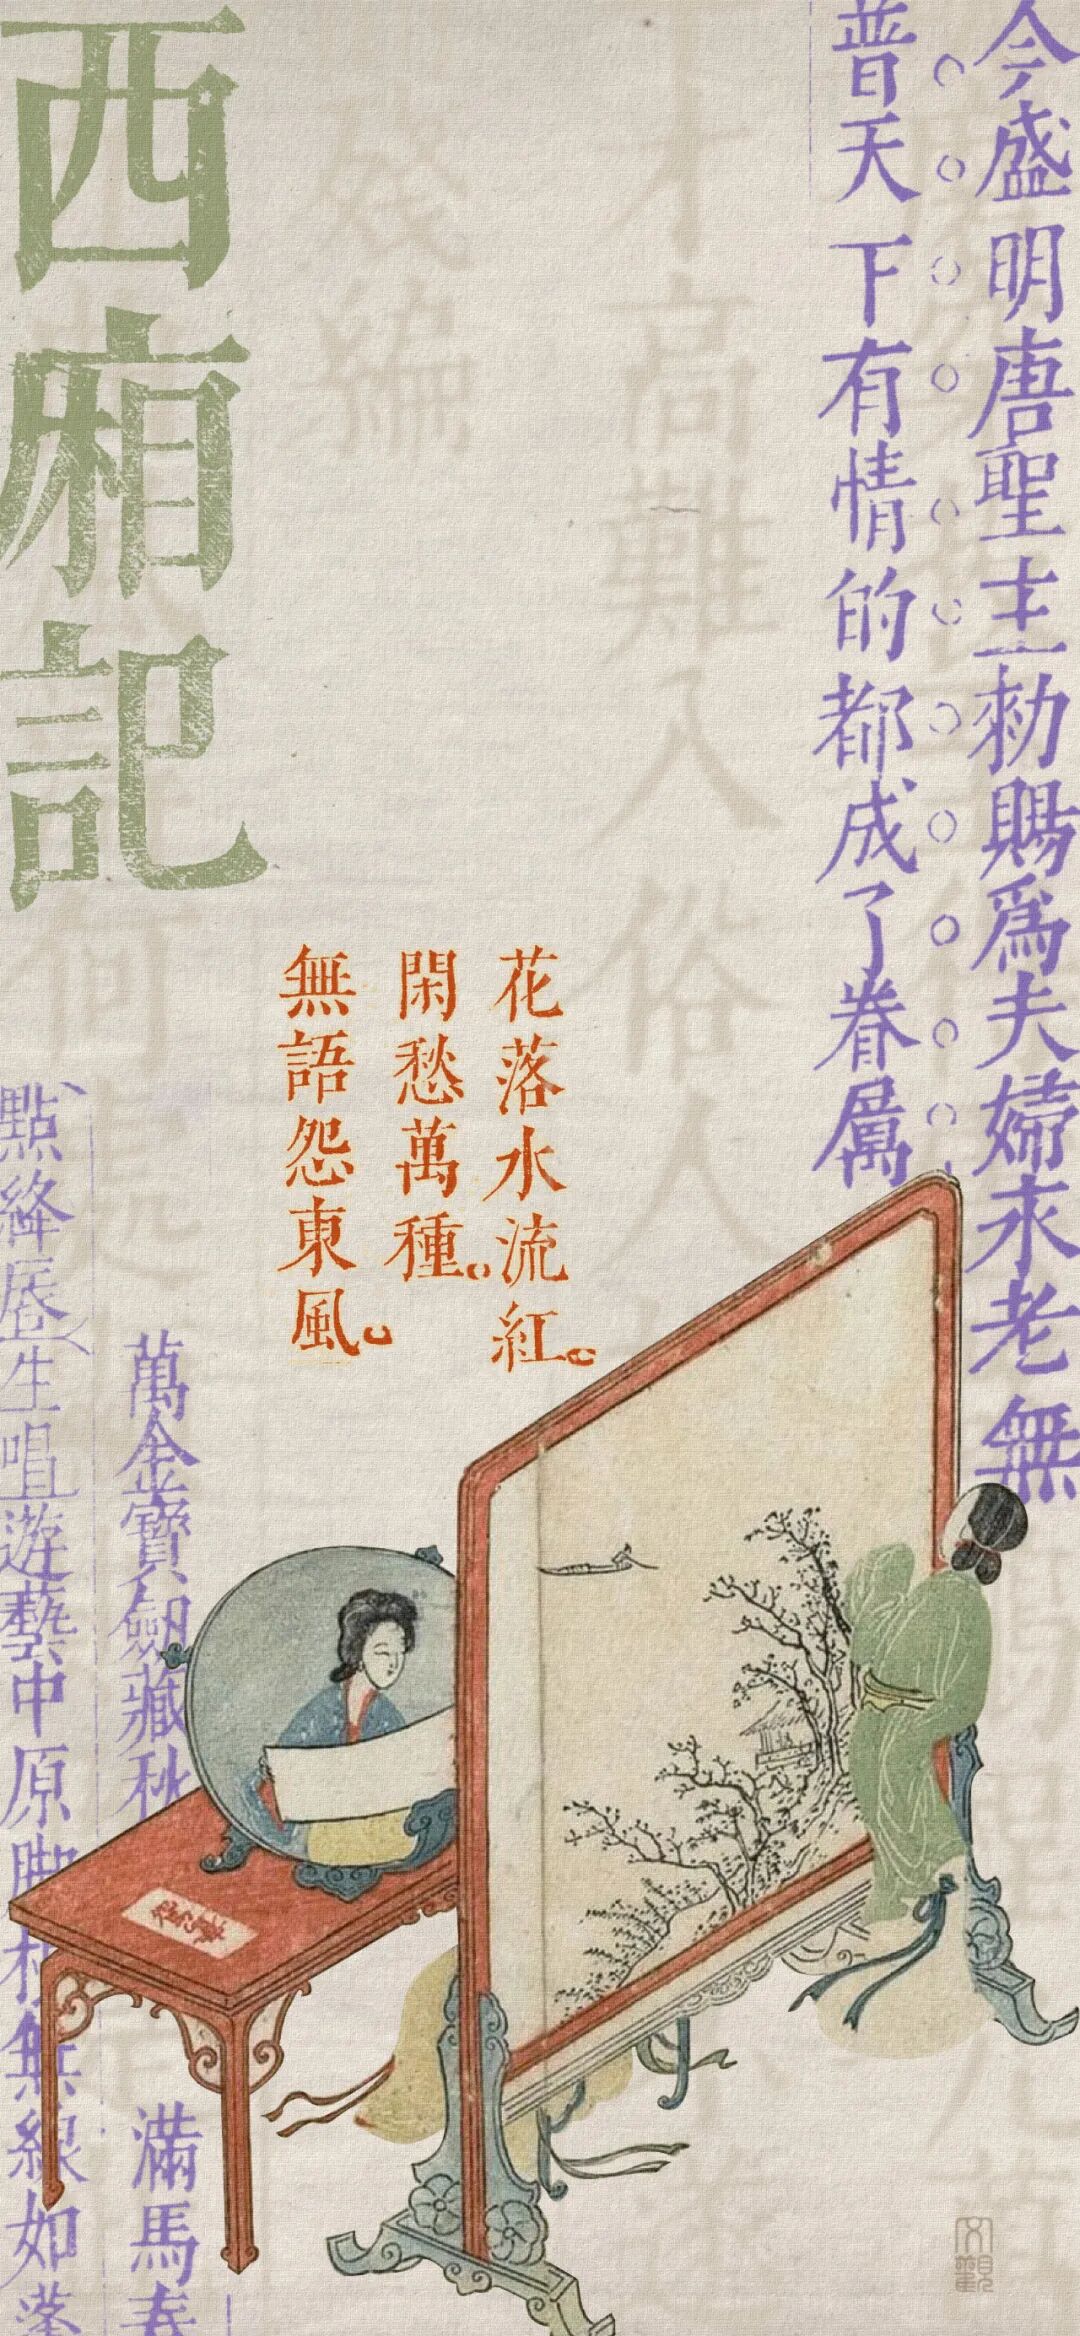 今盛明唐聖主勑賜爲夫婦永老無
普天下有情的都成了眷属
西廂記
花落水流紅。
閑愁萬種。
無語怨東風。
萬金寶劔藏秋
滿馬春
點絳唇生唱遊藝中原脚根無線如蓬
才高難入俗人
文觀